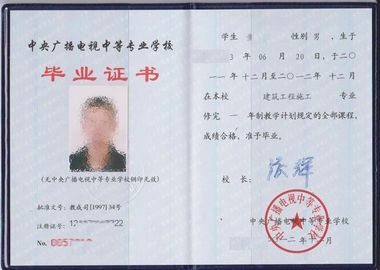 中央广播电视中等专业学校
毕业证书
(无中央广播电视中等专业学校钢印无效)
批准文号:教成司[1997]34号
注册证号:
No.
学生 性别 男,生于
3 年 06 月 20 日,于二〇
一一年十二月至二〇一二年十二月
在本校 建筑工程施工 专业
修完 一 年制教学计划规定的全部课程,
成绩合格,准予毕业。
校 长:
中央广播电视中等专业学校
二〇一二年十二月
中央广播电视中等专业学校